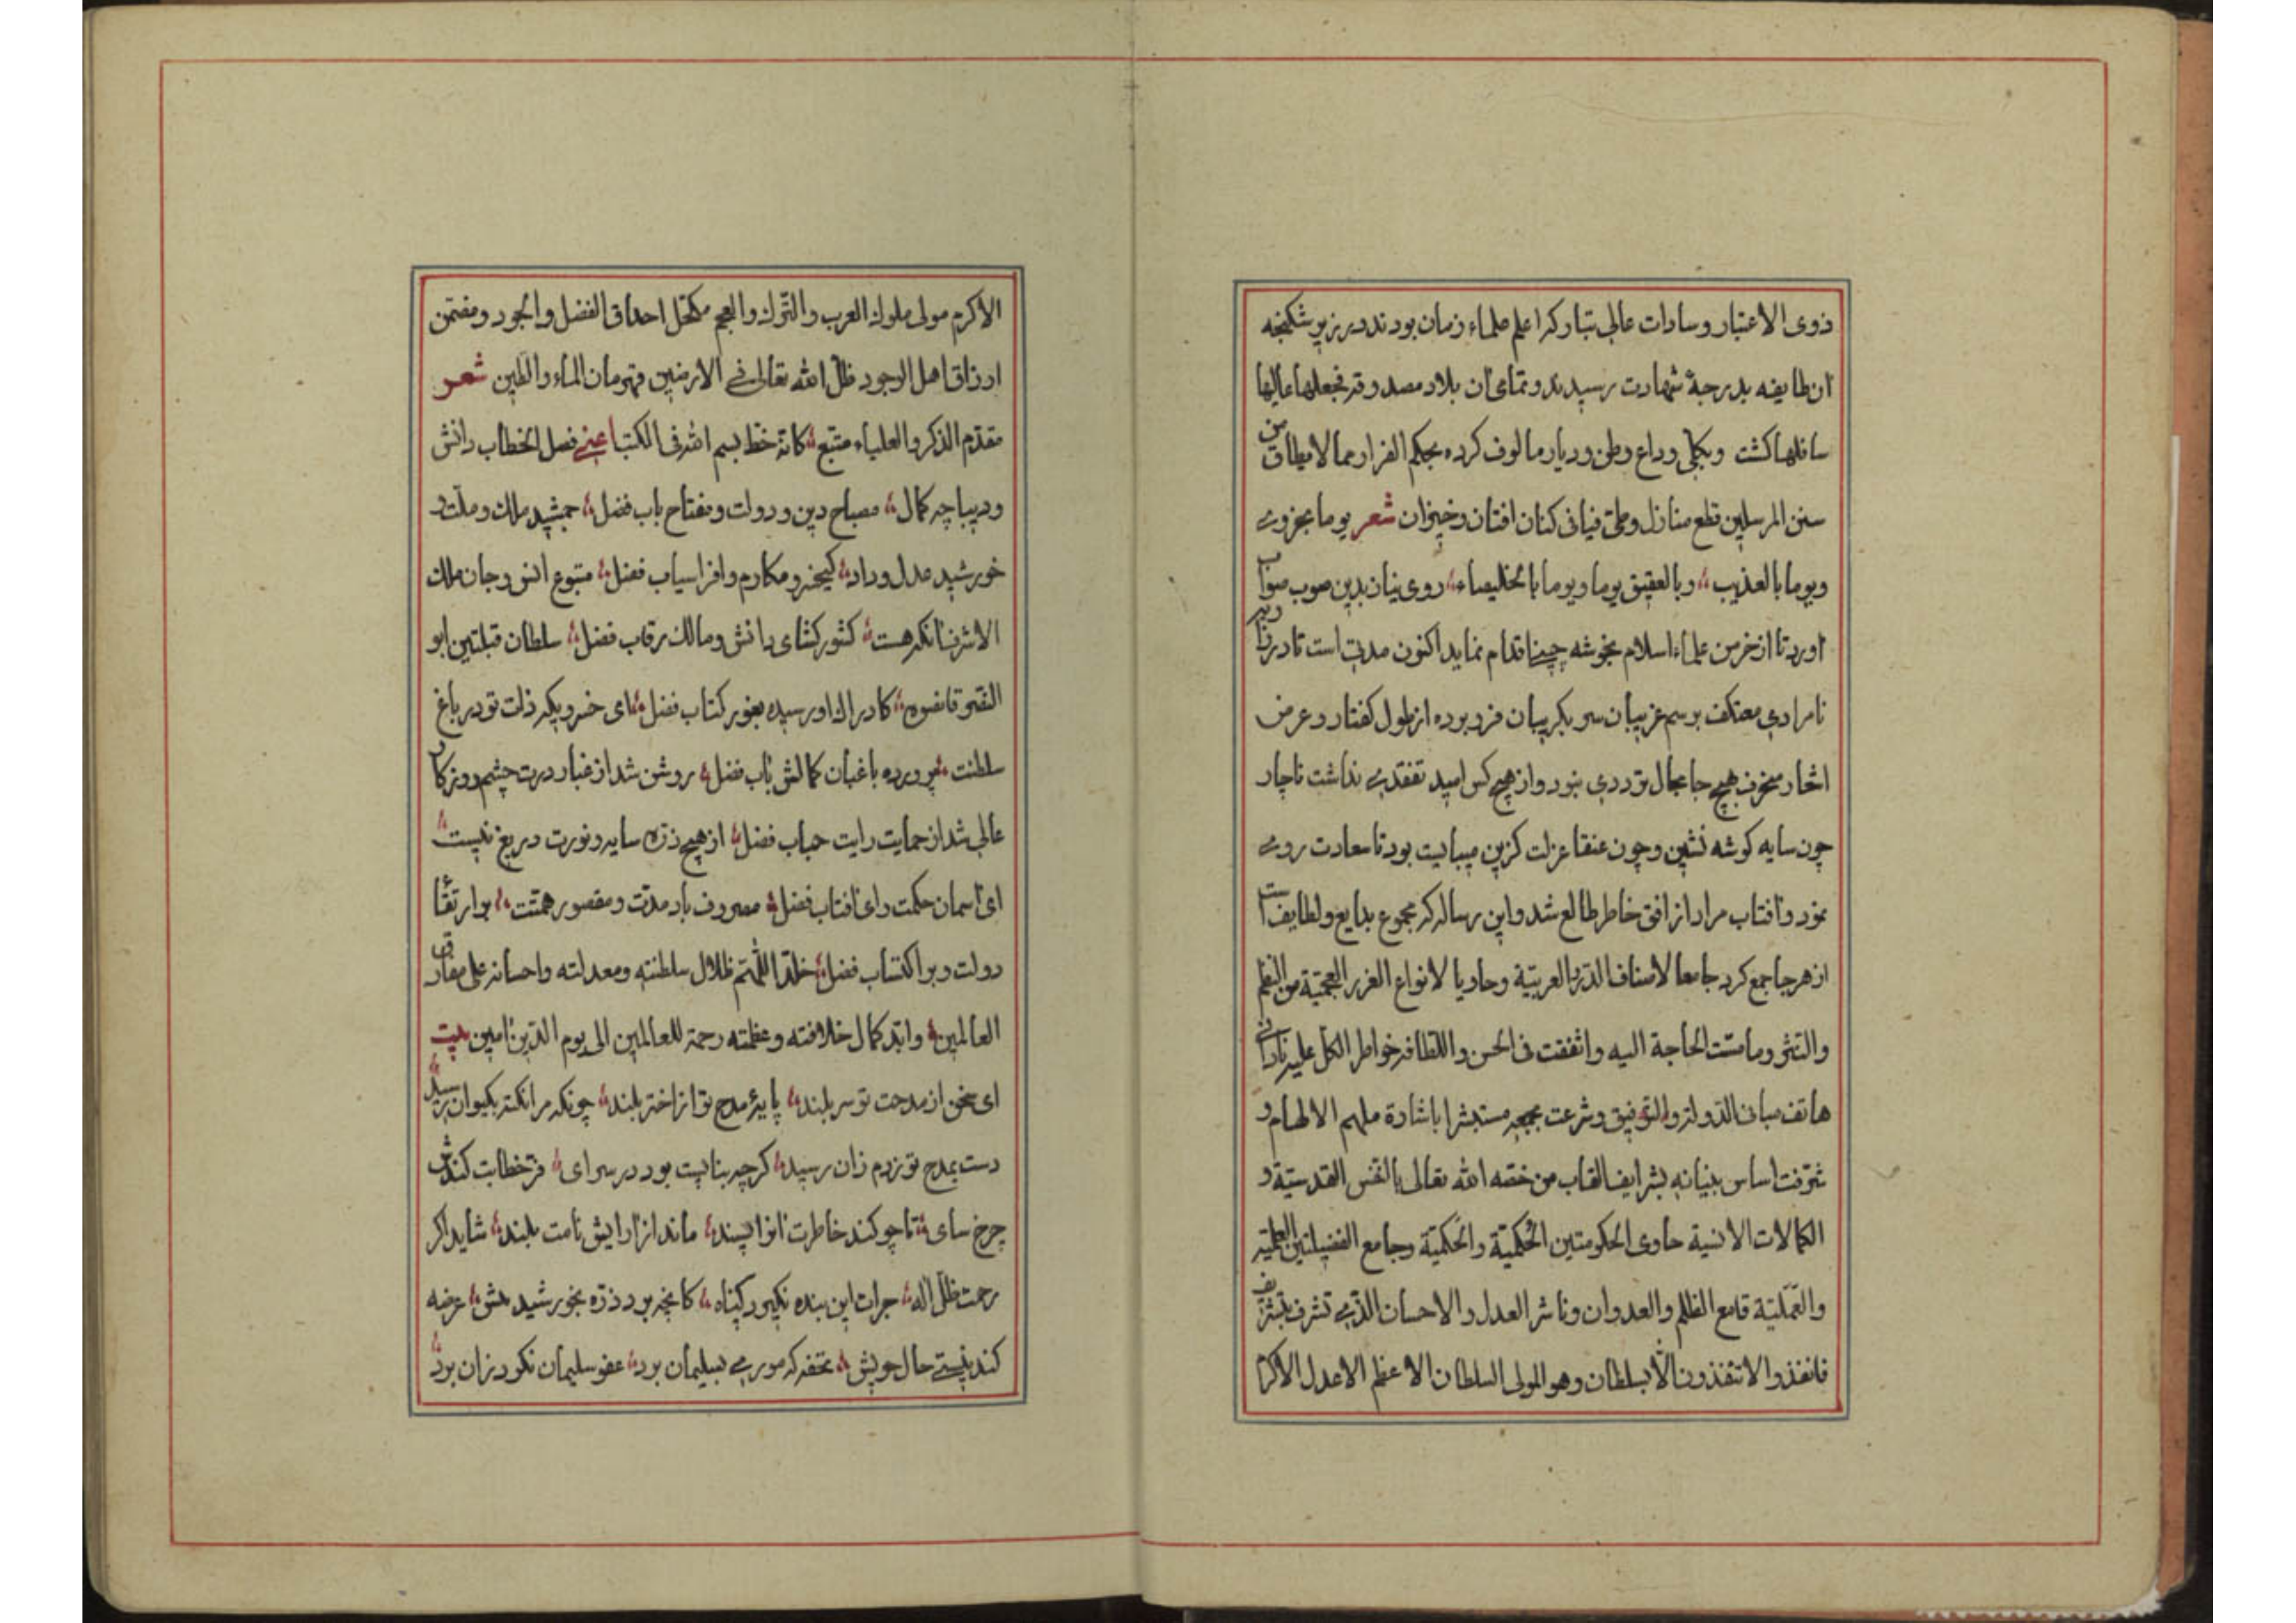 ذوی الاعتبار وسادات عالی تبار که اعلم علماء زمان بودند در زیر شکنجه
ان طایفه بدرجهٔ شهادت رسیدند و تمامی ان بلاد مصدوقه فجعلها عالیها
سافلها کشت وبکلی وداع وطن ودیار مالوف کرده بحکم الفرار مما لا یطاق من
سنن المرسلین قطع منازل وطی فیافی کنان افتان وخیزان شعر یوما بحزوی
ویوما بالعذیب وبالعقیق یوما ویوما بالخلیصاء روی نیاز بدین صوب صواب
اورد تا از خرمن علماء اسلام بخوشه چینی اقدام نماید اکنون مدتی است تا در زاویه
نامرادی معتکف برسم غریبان سر بکریبان فرو برده از طول کفتار وعرض
اشعار مزخرف هیچ جا مجال ترددی نبود واز هیچ کس امید تفقدی نداشت ناچار
چون سایه کوشه نشین وچون عنقا عزلت کزین میبایست بود تا سعادت روی
نمود وافتاب مراد از افق خاطر طالع شد واین رساله که مجموع بدایع ولطایف است
از هر جا جمع کرد جامعا لاصناف الدرر العربیة وحاویا لانواع الغرر العجمیة من النظم
والنثر وما مست الحاجة الیه واتفقت فی الحسن واللطافه خواطر الکل علیه نادانی
هاتف مبانی الدولة والتوفیق وشرعت بجمعه مستبشرا باشارة ملهم الالهام و
شرفت اساس بنیانه بشرایف القاب من خصه الله تعالی بالنفس القدسیة و
الکمالات الانسیة حاوی الحکومتین الحُکمیة والحَکمیة وجامع الفضیلتین العلمیة
والعملیة قامع الظلم والعدوان وناشر العدل والاحسان الذی تشرف بتشریف
فانفذوا لا تنفذون الا بسلطان وهو المولی السلطان الاعظم الاعدل الاکرم
الاکرم مولی ملوك العرب والترك والعجم مکحل احداق الفضل والجود ومقسم
ارزاق اهل الوجود ظل الله تعالی فی الارضین قهرمان الماء والطین شعر
مقدم الذکر والعلیاء متبع کانه خط بسم الله فی الکتب اعنی فصل الخطاب دانش
ودیباچه کمال مصباح دین و دولت ومفتاح باب فضل جمشید ملك وملت و
خورشید عدل وداد کیخسرو مکارم وافراسیاب فضل متبوع انس وجان ملك
الاشرف انکه هست کشور کشای دانش ومالك رقاب فضل سلطان قبلتین ابو
النصر قانصوه کادراك او رسیده بغور کتاب فضل ای خسرویکه ذلت تو در باغ
سلطنت پرورده باغبان کمالش باب فضل روشن شد از غبار درت چشم روزکار
عالی شد از حمایت رایت جناب فضل از هیچ ذره سایه ونورت دریغ نیست
ای اسمان حکمت وای افتاب فضل مصروف باد مدت ومقصور همتت بر ارتقاء
دولت وبر اکتساب فضل خلد اللهم ظلال سلطنته ومعدلته واحسانه علی مفارق
العالمین وابد کمال خلافته وعظمته رحمة للعالمین الی یوم الدین امین بیت
ای سخن از مدحت تو سر بلند پایهٔ مدح تو از اختر بلند چونکه مرا نکته بکیوان رسید
دست بمدح تو زدم زان رسید کرچه بنایست بود در سرای فر خطابت کندش
چرخ سای تا چو کند خاطرت انرا پسند ماند از ارایش نامت بلند شاید اکر
رحمت ظل اله جرات این بنده نکیرد کناه کانچه بود ذره بخورشید هش عرضه
کند نیستی حال خویش تحفه که موری بسلیمان برد عفو سلیمان نکو درزان برد